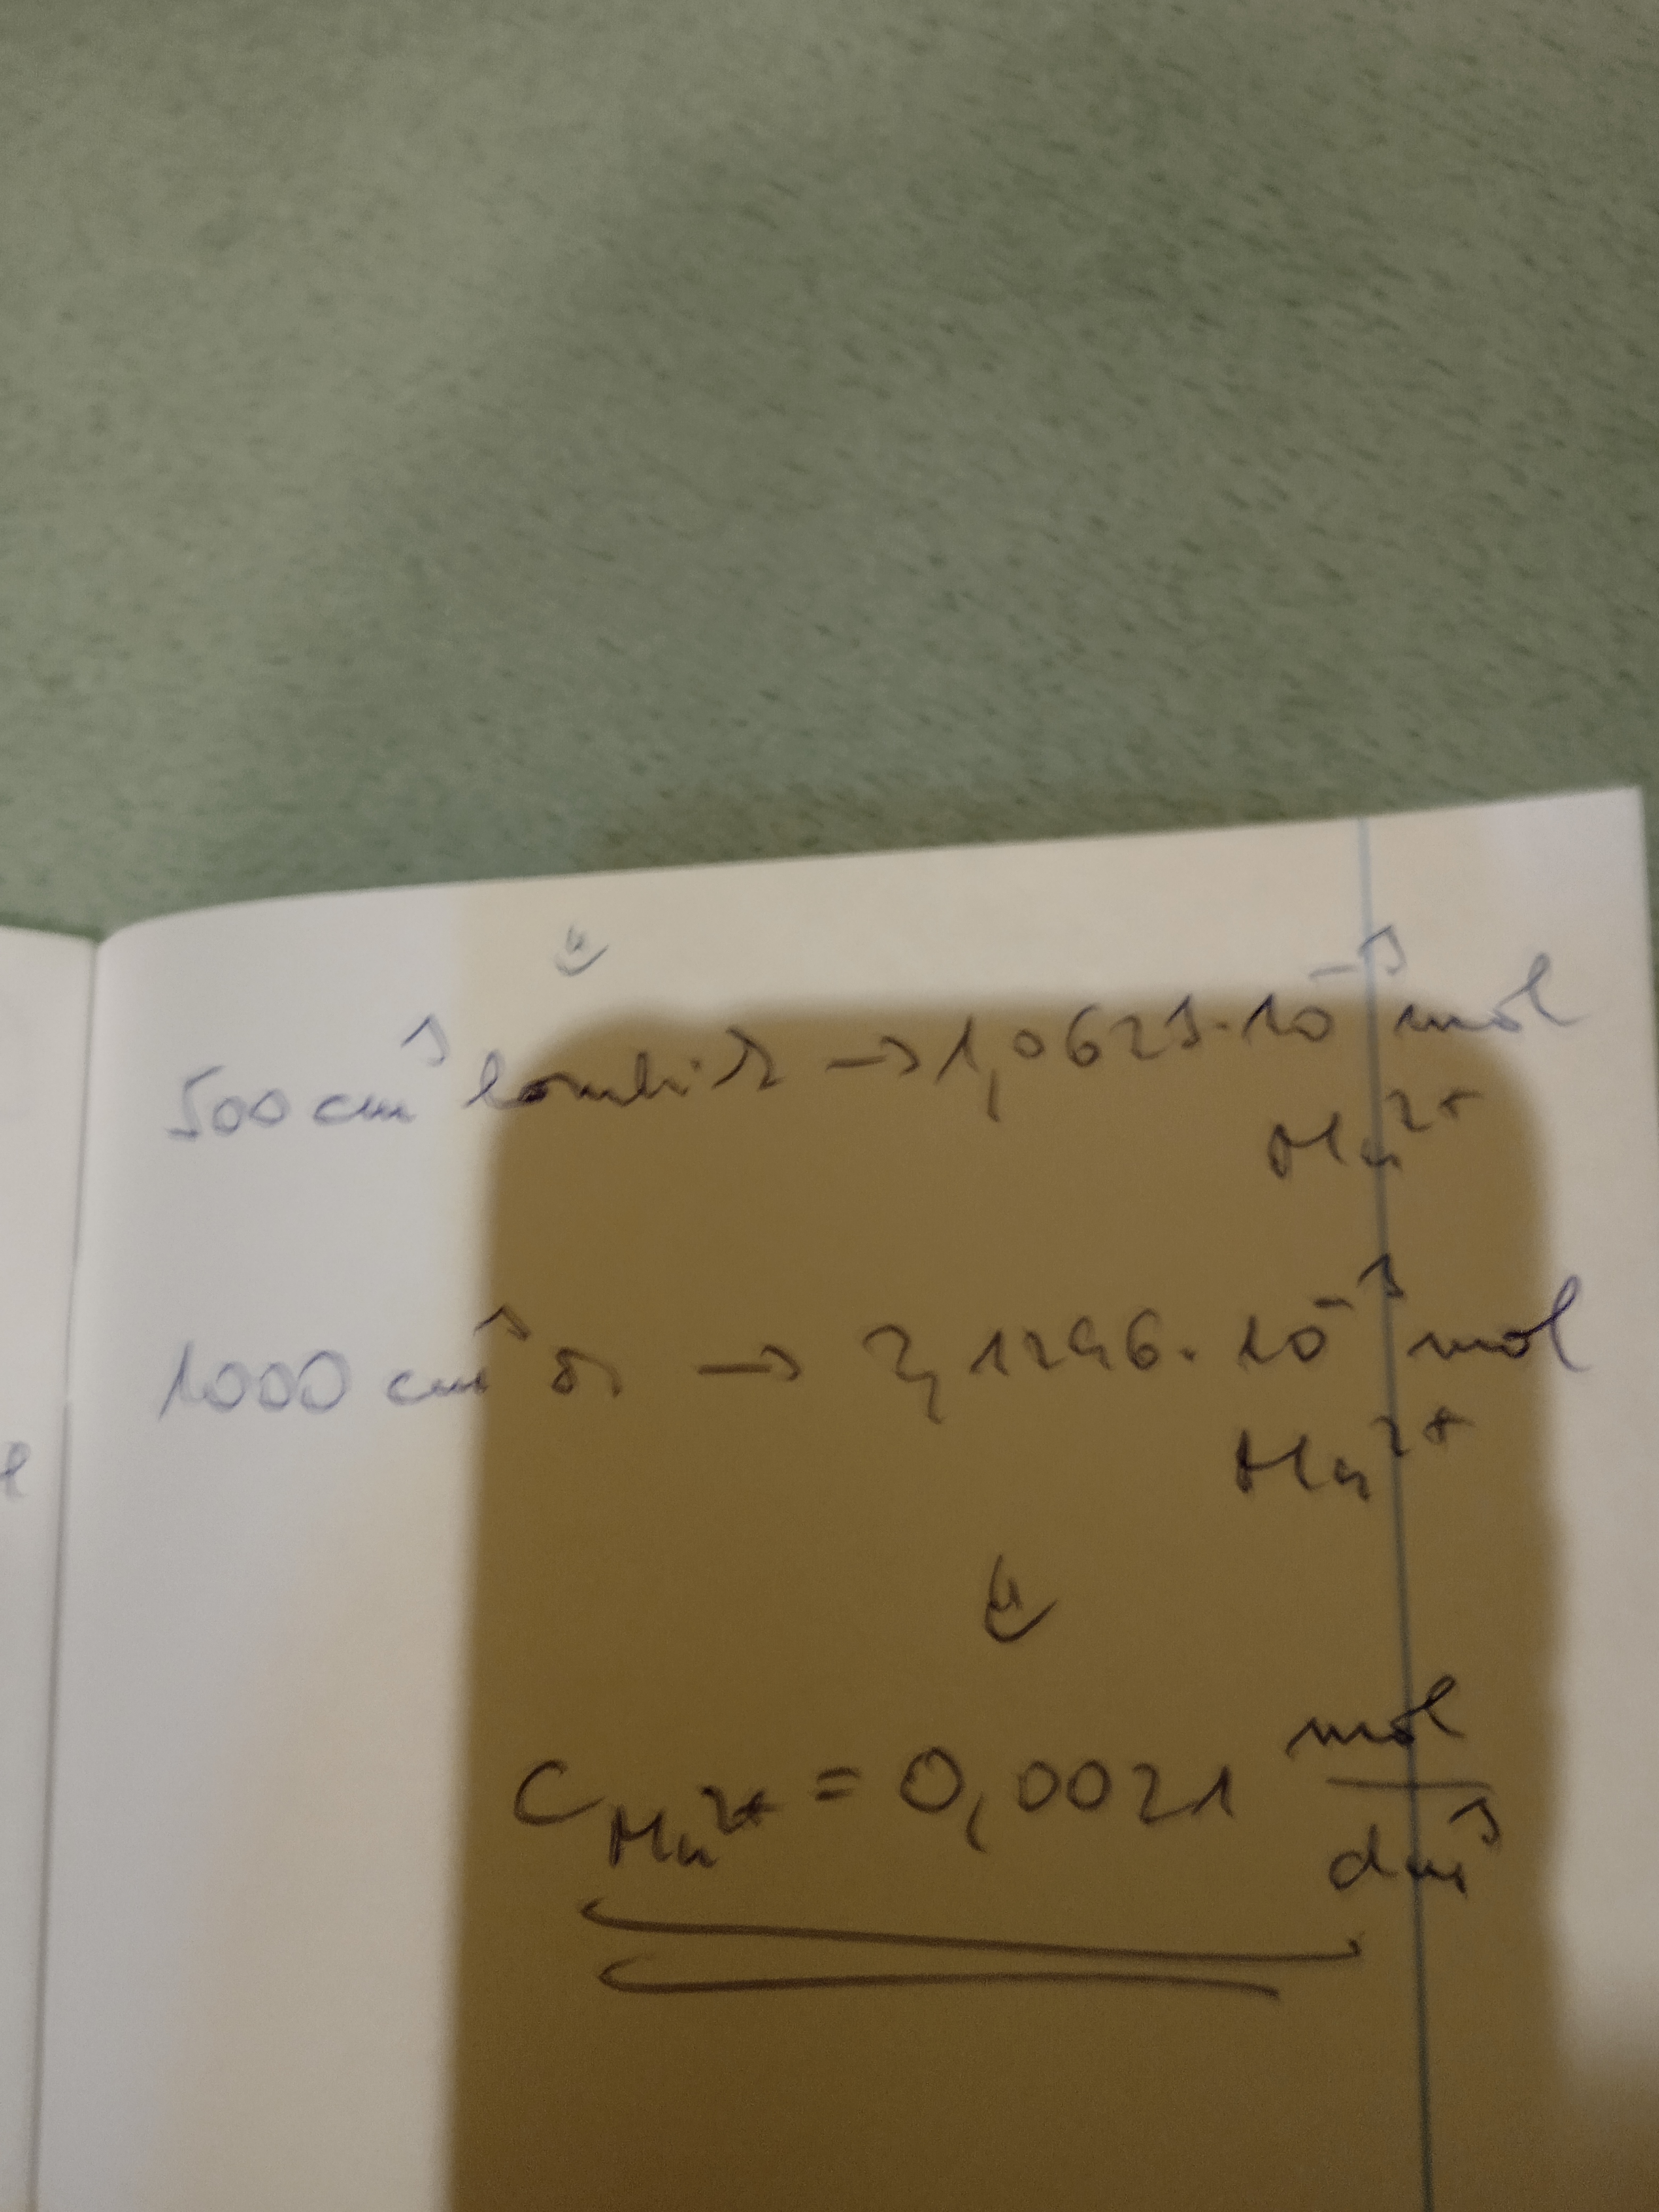 500 cm³ lombik → 1,0623·10⁻³ mol
Mn²⁺
1000 cm³ → 2,1246·10⁻³ mol
Mn²⁺
⇓
C Mn²⁺ = 0,0021 mol/dm³